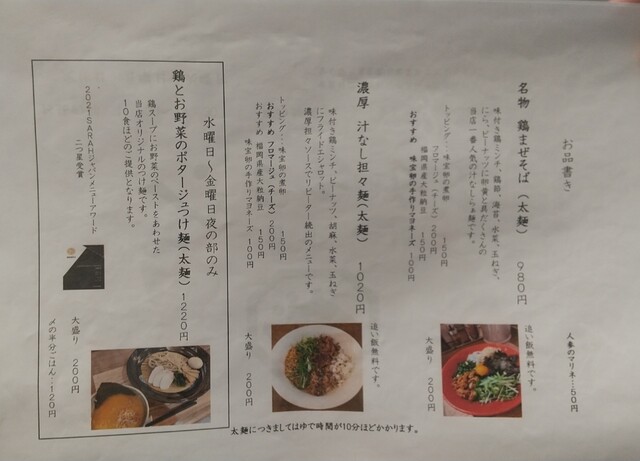 お品書き
名物　鶏まぜそば（太麺）　980円
味付き鶏ミンチ、鶏節、海苔、水菜、玉ねぎ、
にら、ピーナッツに卵黄と具だくさんの
当店一番人気の汁なしらぁ麺です。
トッピング：味玉卵の煮卵　150円
フロマージュ（チーズ）200円
福岡県産大粒納豆　150円
おすすめ　味玉卵の手作りマヨネーズ　100円
人参のマリネ…50円
追い飯無料です。
大盛り　200円
濃厚　汁なし担々麺（太麺）　1020円
味付き鶏ミンチ、ピーナッツ、胡麻、水菜、玉ねぎ
にフライドエシャロット。
濃厚担々ソースでリピーター続出のメニューです。
トッピング：味玉卵の煮卵　150円
おすすめ　フロマージュ（チーズ）200円
福岡県産大粒納豆　150円
おすすめ　味玉卵の手作りマヨネーズ　100円
追い飯無料です。
大盛り　200円
水曜日～金曜日夜の部のみ
鶏とお野菜のポタージュつけ麺（太麺）　1220円
鶏スープにお野菜のペーストをあわせた
当店オリジナルのつけ麺です。
10食ほどのご提供となります。
2021SARAHジャパンメニューアワード
二つ星受賞
大盛り　200円
〆の半分ごはん…120円
太麺につきましてはゆで時間が10分ほどかかります。